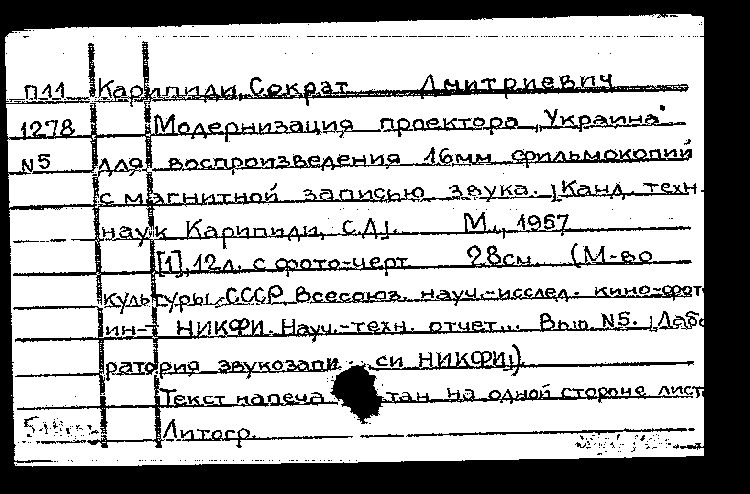 П11 Карипиди, Сократ Дмитриевич
1278 Модернизация проектора „Украина"
N5 для воспроизведения 16мм фильмокопий
с магнитной записью звука. /Канд. техн.
наук Карипиди, С.Д/. М., 1957
[1], 12л. с фото-черт 28см. (М-во
культуры СССР. Всесоюз. науч.-исслед. кино-фот
ин-т НИКФИ. Науч.-техн. отчет... Вып. N5. /Лабо
ратория звукозапи си НИКФИ/)
Текст напеча тан на одной стороне лист
Литогр.